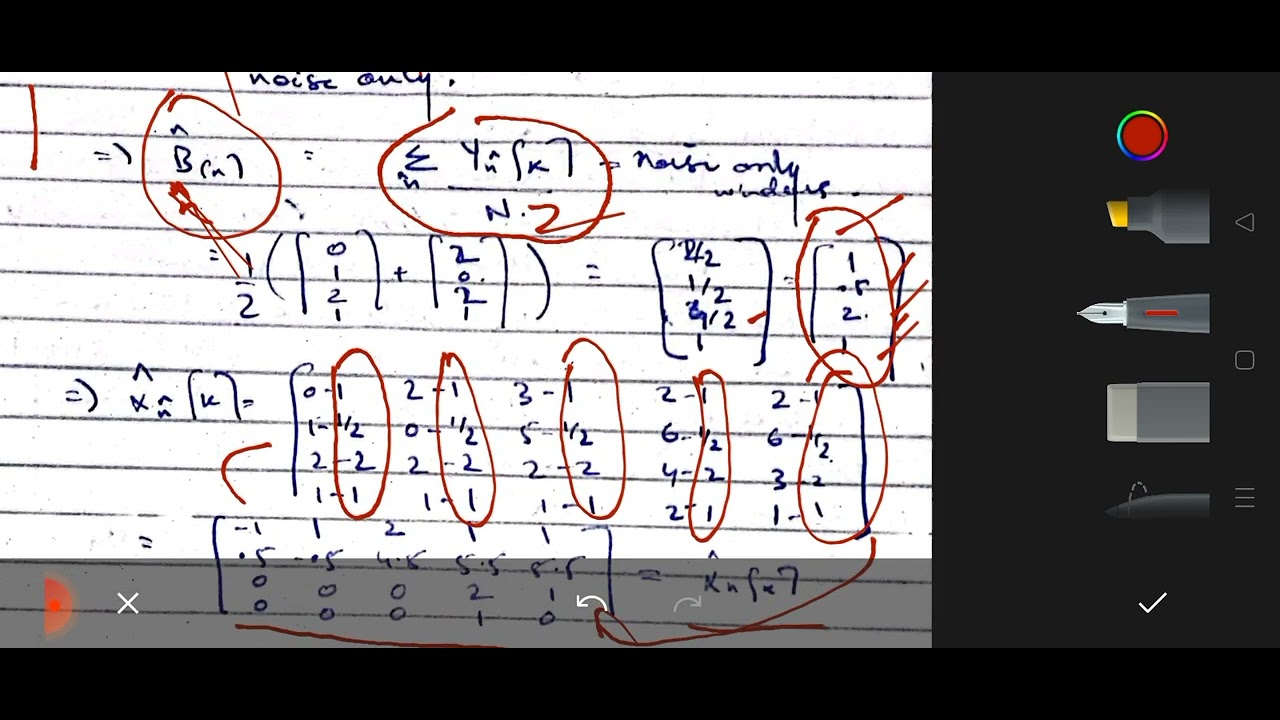 noise only.
=> B̂[n] = Σn̂ Yn̂[k] / N.2 = noise only windows.
= 1/2 ( [0 1 2 1] + [2 0. 2 1] ) = [2/2 1/2 4/2 1] = [1 .5 2. 1]
=> X̂n̂[k] = [0-1 2-1 3-1 2-1 2-1
1-1/2 0-1/2 5-1/2 6-1/2 6-1/2
2-2 2-2 2-2 4-2 3-2
1-1 1-1 1-1 2-1 1-1]
= [-1 1 2 1 1
.5 -.5 4.5 5.5 5.5
0 0 0 2 1
0 0 0 1 0] = X̂n[k]